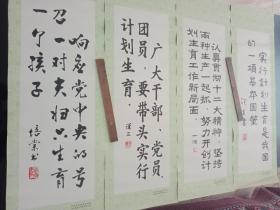 实行计划生育是我国
的一项基本国策
认真贯彻十二大精神,坚持
两种生产一起抓,努力开创计
划生育工作新局面
广大干部、党员、
团员,要带头实行
计划生育.
响应党中央的号
召一对夫妇只生育
一个孩子